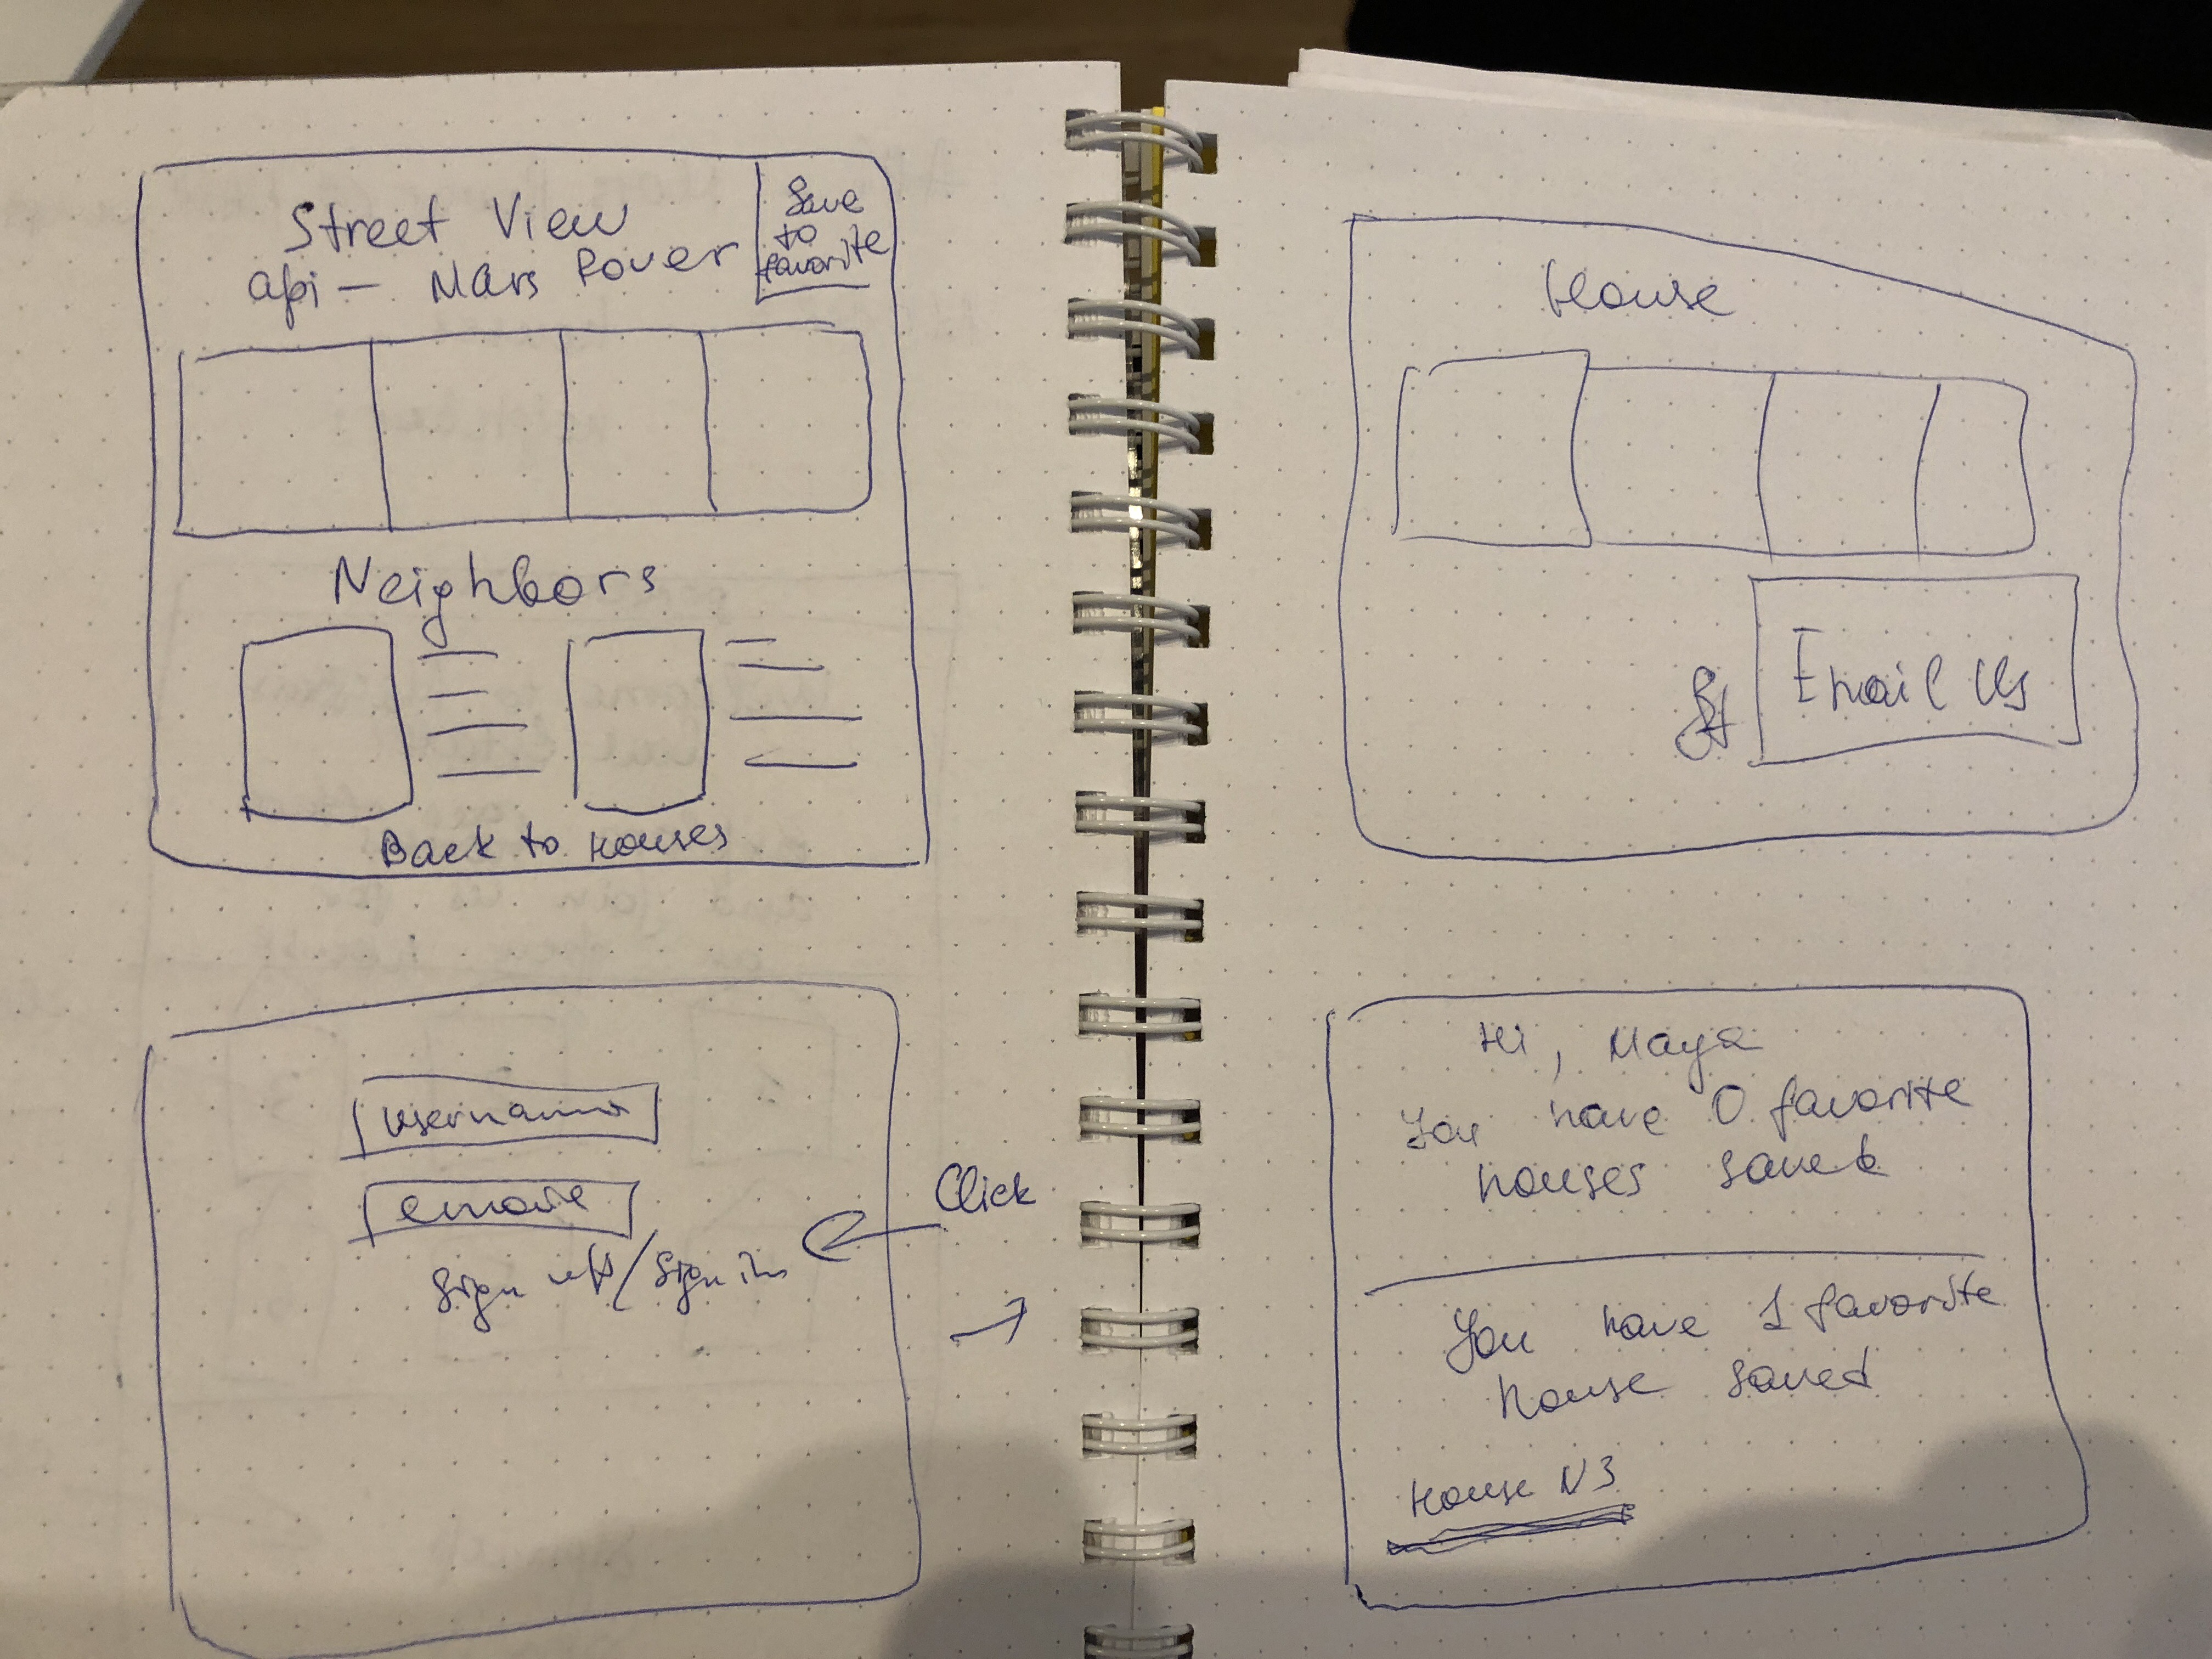 Street View
api — Mars Rover
Save
to
favorite
Neighbors
Back to Houses
House
Email Us
username
Sign up/Sign in
Click
Hi, Maya
You have 0 favorite
houses saved
You have 1 favorite
house saved
House N3